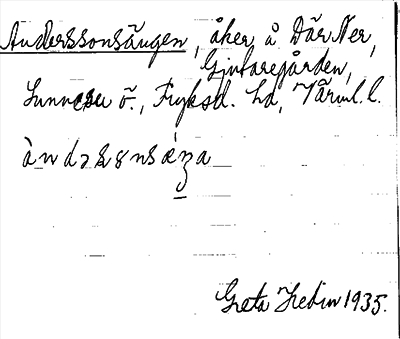 Anderssonsängen, åker å Där Ner,
Gjutaregården,
Sunnesu ö., Fryksd. hd, Värml. l.
àndəsɷnsɛ́ŋa
Greta Hedin 1935.